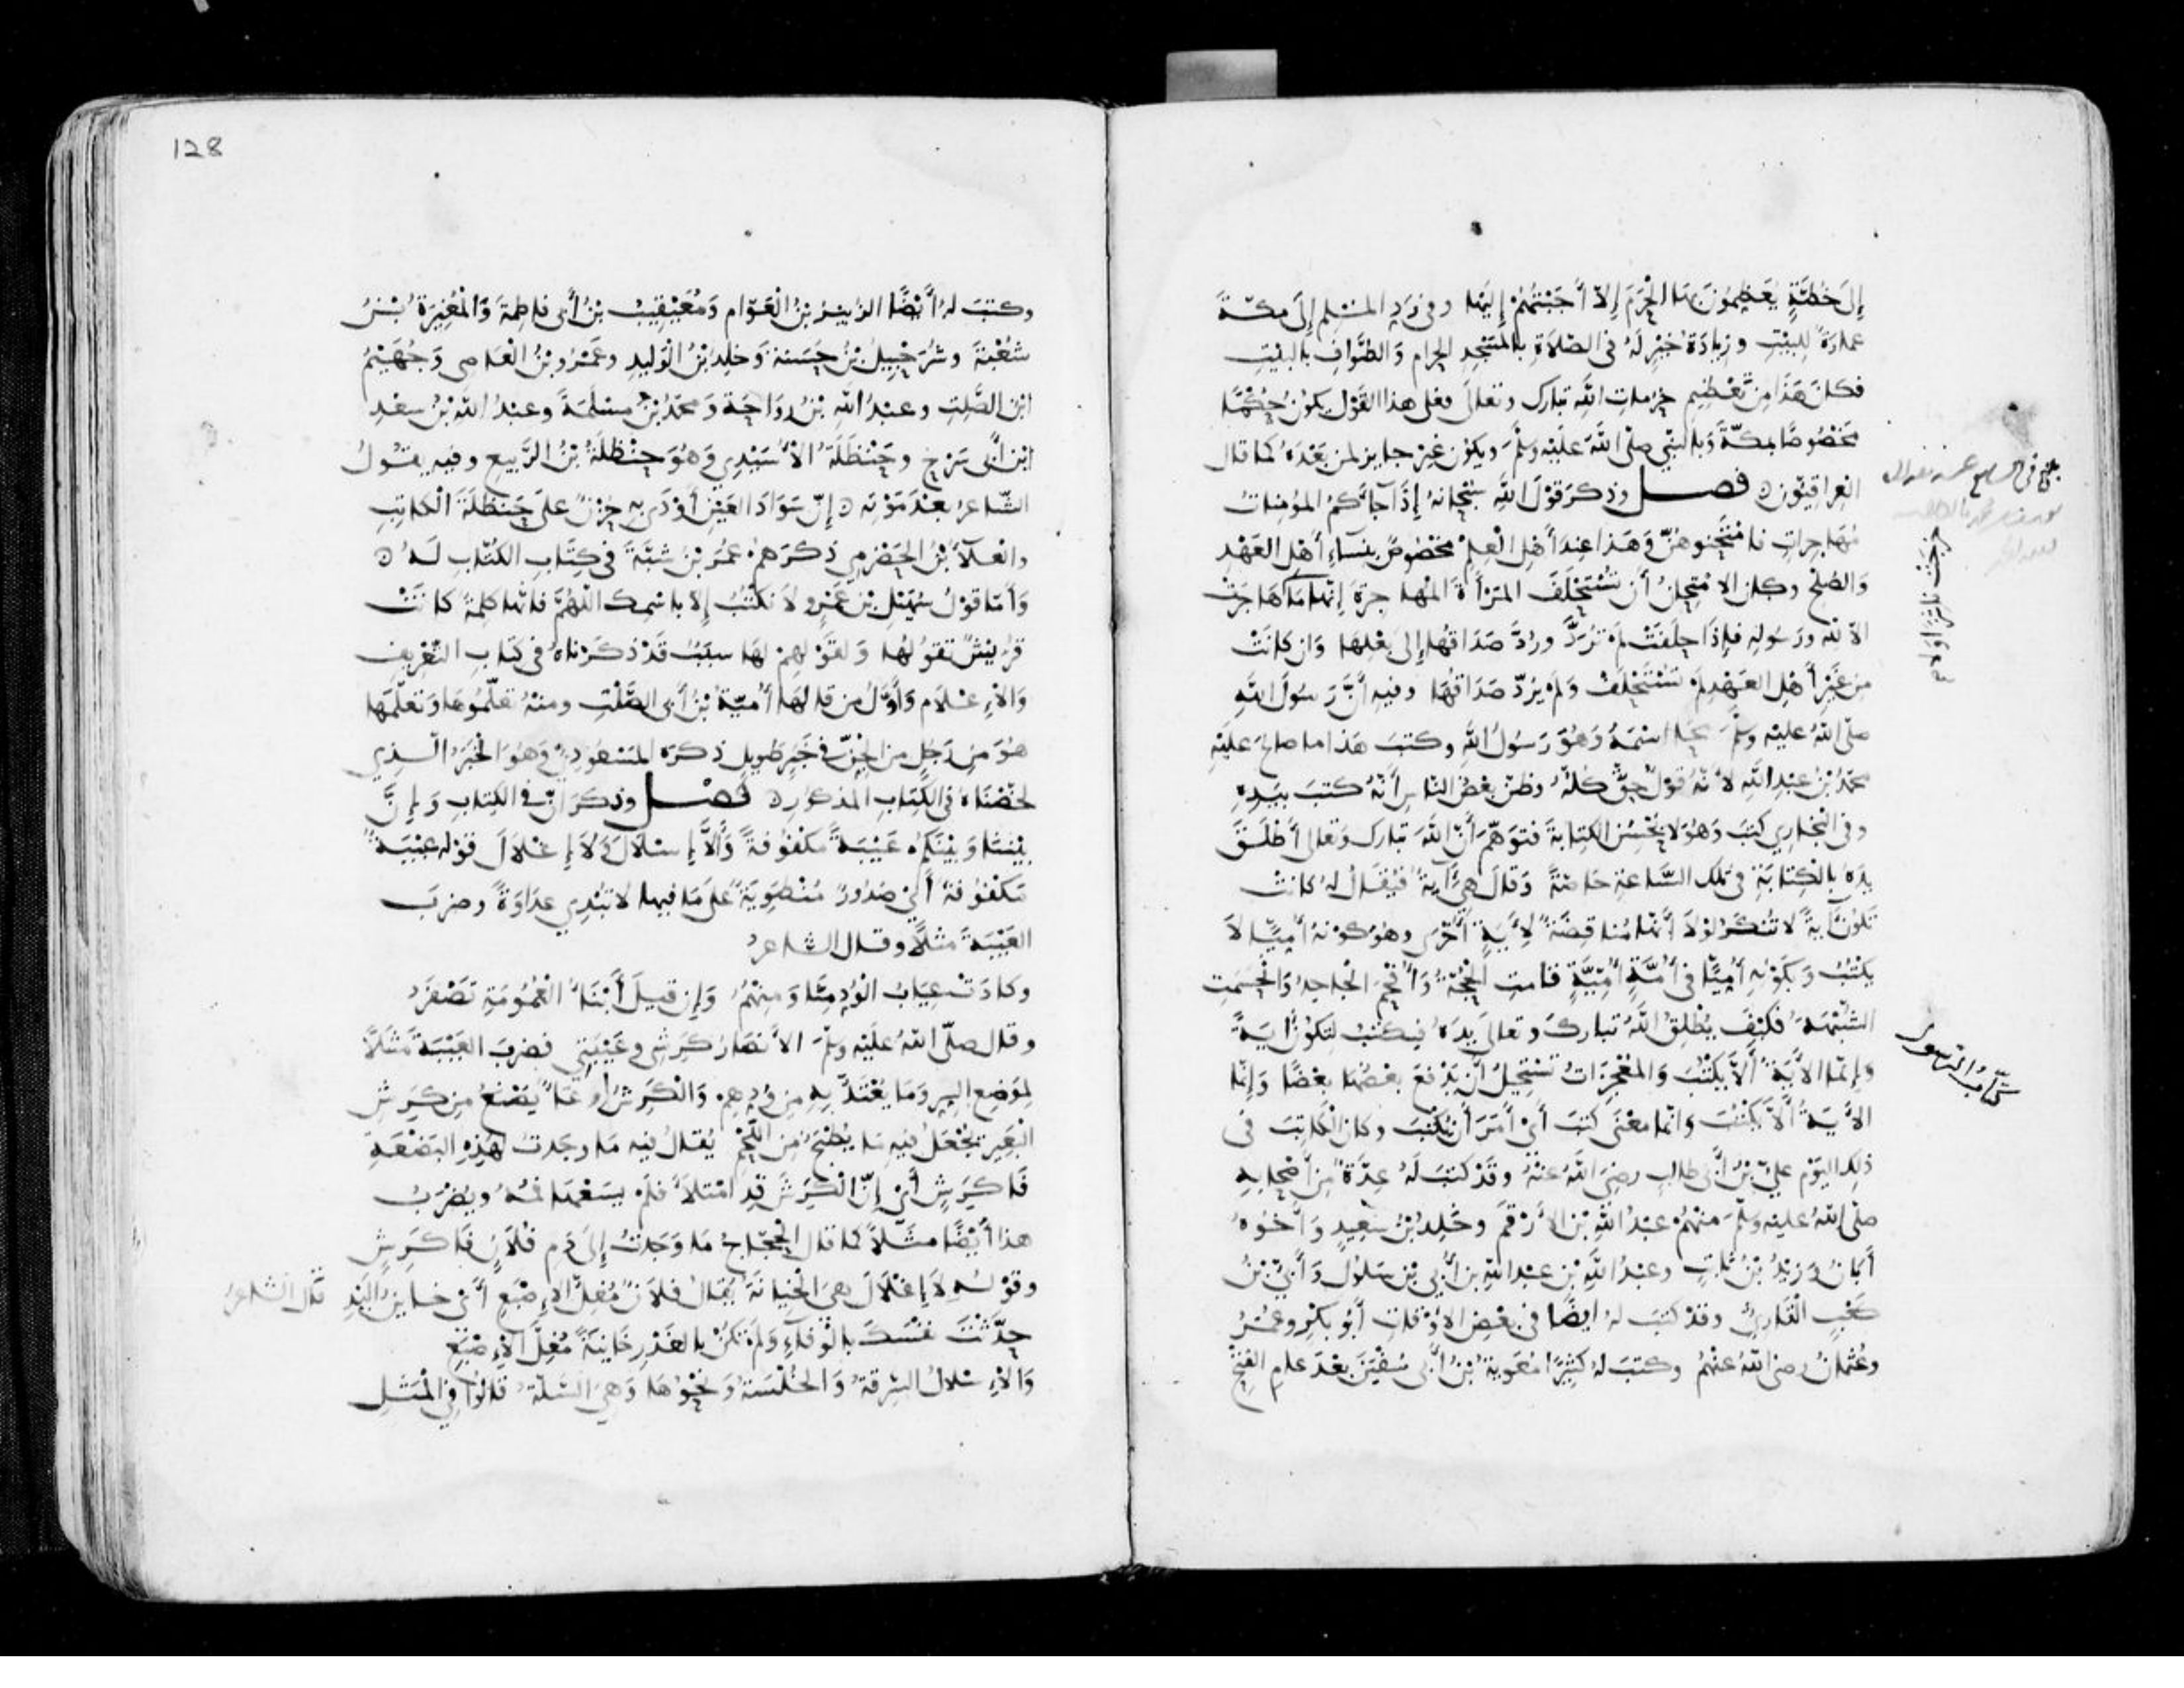 إِلَى خُطَّةٍ يُعَظِّمُونَ بِهَا الحَرَمَ إِلاّ أَجَبْتُهُمْ إِلَيْهَا وفي رَدِ المُسْلِمِ إِلَى مَكّةَ
عمارَةً للبَيْتِ وزِيَادَةُ خَيْرٍ لَهُ في الصّلاَةِ بالمَسْجِدِ الحرامِ وَالطَّوَافِ بالبَيْتِ
فكانَ هَذَا مِن تَعْظِيمِ حُرُماتِ اللَّهِ تبارك وتعالَى فعلى هذا القَوْلِ يكونُ حُكْمًا
مَخْصُوصًا بمكّةَ وَبالنّبيِ صلّى اللَّهُ عَلَيْهِ وسَلَّمَ ويكون غَيْرَ جايزٍ لمن بَعْدَهُ كما قال
العِراقيّون ۞ فصل وذكرَ قَوْلَ اللَّهِ سُبْحَانَهُ إِذَا جآءَكُم المُؤمناتُ
مُهَاجِراتٍ فامْتَحِنوهُنّ وَهَذا عِندَ أهْلِ الْعِلْمِ مَخْصُوصٌ بنسَاءِ أَهْلِ العَهْدِ
وَالصُلْحِ وكان الامتِحانُ أن تُسْتَحْلَفَ المَرْأَةُ المُهاجِرَة إِنّها مَا هَاجَرَتْ
الاّ للهِ ورَسُولِهِ فإذا حلَفَتْ لَمْ تُرَدَّ ورُدَّ صَدَاقُها إلى بَعْلِهَا وَان كَانَتْ
من غَيْرِ أَهْلِ العَهْدِ لَمْ تُسْتَحْلَفْ وَلَمْ يُرَدّ صَدَاقُهَا وفيهِ أَنَّ رَسُولَ اللَّهِ
صلّى اللهُ عليْهِ وسلَّمَ مَحَا اسْمَهُ وَهُوَ رَسُولُ اللَّهِ وكتبَ هَذا ما صالحَ عَلَيْهِ
محمّدُ بْنُ عَبْدِ اللَّهِ لأَنّهُ قَوْلٌ حَقٌّ كُلُّهُ وظنّ بَعْضُ النّاسِ أَنَّهُ كتبَ بِيَدِهِ
وفي البُخاري كتَبَ وَهُوَ لا يُحْسِنُ الكِتابةَ فَتَوَهَّمَ أَنّ اللَّهَ تبارك وَتعالى أَطْلَقَ
يدَهُ بالْكِتابَةِ في تلك السَّاعَةِ خاصّةً وَقالَ هِيَ آيَةٌ فيُقَالُ لهُ كانَتْ
تَكُونُ آيةً لا تُنْكَرُ لَوْلاَ أَنَّها مُناقِضَةٌ لِآيَةٍ أُخْرَى وهُوَ كوْنهُ أُمِّيًّا لاَ
يكْتُبُ وَبكَوْنِهِ أُمِيًّا في أُمَّةٍ أُمِّيَّةٍ قامت الحُجّةُ وَأُفْحِمَ الجاحدُ وَانْحسَمتِ
الشُّبْهَةُ فكَيْفَ يُطْلِقُ اللَّهُ تباركَ وتعالى يدَهُ فيكْتُبُ لِتكُونَ آيَةً
وإنّما الآيَةُ أَلاَّ يَكْتُبَ وَالمُعْجِزَاتُ تَسْتَحِيلُ أَنْ يَدْفعَ بعْضُهَا بعْضًا وَإنّما
الآيَةُ أَلاَّ يَكْتُبَ وَانّما مَعْنَى كتبَ أَيْ أَمَرَ أن يُكْتبَ وكان الْكاتِبَ في
ذلِك اليَوْمِ عَليّ بْنُ أَبي طالبٍ رضِيَ اللَّهُ عَنْهُ وقَدْ كتبَ لَهُ عِدّةٌ مِنْ أَصْحابِهِ
صلى اللهُ عليْهِ وسلَّمَ منهُمْ عبْدُ اللَّهِ بْن الأَرْقَمِ وخَلِدُ بْنُ سَعِيدٍ وَأَخُوهُ
أَبَانُ وَزيْدُ بْنُ ثابتٍ وعبْدُ اللَّهِ بْن عبدِ اللهِ بنِ أُبَيّ بْنِ سَلُولٍ وَأُبَيّ بْنُ
كعْبٍ القَارِيُ وقدْ كتبَ لهُ ايضًا في بعْضِ الأَوْقاتِ أَبُو بكْرٍ وعُمَرُ
وعُثْمانُ رضي اللهُ عنهُمْ وكتبَ لهُ كثِيرًا مُعَوِيةُ بْنُ أَبي سُفْيَنَ بعْدَ عامِ الفَتْحِ
بلغ في
كُتّابُ الرسول
128
وكتبَ لهُ أَيْضًا الزُبَيْرُ بْنُ الْعَوّامِ وَمُعَيْقِيبُ بْنُ أَبي فاطِمةَ وَالْمُغِيرَةُ بْنُ
شُعْبَةَ وشُرَحْبِيلُ بْنُ حَسَنةَ وَخلِدُ بْنُ الْوَليدِ وعَمْرُو بْنُ الْعَاصِي وَجُهَيْمُ
ابْنُ الصَّلتِ وعبْدُ اللهِ بْنُ رواحَةَ وَمحمّدُ بْنُ مسْلمَةَ وعبدُ اللَّهِ بْنُ سعْدِ
ابْنِ أَبي سَرْحٍ وحَنْظَلَةُ الأُسَيْدِي وَهُوَ حنْظلَةُ بْنُ الرَّبيعِ وفيهِ يقُولُ
الشّاعِرُ بعْدَ مَوْتِهِ ۞ إِنّ سَوَادَ العَيْنِ أَوْدَى بِهِ حُزْنٌ عَلَى حَنظلَةَ الْكاتِبِ
والعلآءُ بْنُ الحَضْرَمِي ذكَرَهمْ عُمَرُ بْنُ شَبّةَ في كِتَابِ الكُتّابِ لَهُ ۞
وَأَمّا قَوْلُ سُهَيْلِ بْنِ عَمْرٍو لا نَكتُبُ إِلاّ باسْمِك اللَّهُمَّ فانّها كلِمةٌ كانَتْ
قُرَيْشٌ تقُولُها وَلقَوْلِهِمْ لهَا سبَبٌ قَدْ ذكَرْناهُ في كتَابِ التّعْرِيفِ
وَالإِعْلامِ وَأَوَّلُ من قالَهَا أُميّةُ بْنُ أَبي الصَّلْتِ ومنْهُ تعَلّمُوهَا وَتعلّمَها
هُوَ مِن رَجُلٍ من الجِنِّ في خَبَرٍ طويلٍ ذكرَهُ المَسْعُودِيّ وَهُوَ الْخَبَرُ الّذِي
لخّصْنَاهُ في الكِتَابِ المذكورِ ۞ فصل وذكرَ أنّ في الكِتابِ وَإِنَّ
بيْننَا وَبيْنَكُم عَيْبَةً مَكْفُوفةً وَأَلاَّ إِسْلاَلَ وَلاَ إِغْلاَلَ قوْلهُ عَيْبَةٌ
مَكْفُوفةٌ أَيْ صُدُورٌ مُنْطَوِيَةٌ عَلَى مَا فيها لا تُبْدِي عداوَةً وضربَ
العَيْبَةَ مثلاً وقال الشاعرُ
وكادَتْ عِيَابُ الوُدِّ مِنَّا وَمِنْهُمُ وَإِن قِيلَ أَبْنَآءُ الْعُمُومَةِ تَصْفَرُ
وقال صلّى اللهُ عَلَيْهِ وسلَّمَ الأَنصَارُ كَرِشي وعَيْبَتِي فضربَ العَيْبَةَ مَثَلاً
لِمَوْضِعِ السِرِ وَمَا يُعْتَدُّ بِهِ مِن وُدِّهِمْ وَالْكَرِشُ وِعَاءٌ يُصْنَعُ مِن كَرِشِ
البَعِيرِ يُجْعَلُ فيهِ مَا يُطْبَخُ مِنَ اللَّحْمِ يُقالُ فيهِ مَا وجَدتُ لِهَذِهِ البَضْعَةِ
فَا كَرِشٍ أَيْ إِنّ الْكَرِشَ قدِ امْتلأَ فلَمْ يسَعْهَا فَمُهُ ويُضْرَبُ
هذا أَيْضًا مثَلاً كما قال الحَجّاجُ مَا وَجَدتُ إِلَى دَمِ فُلاَنٍ فَا كَرِشٍ
وقوْلهُ لاَ إِغْلاَلَ هيَ الْخِيانَةُ يُقالُ فلاَنٌ مُغِلُّ الإِصْبَعِ أَيْ خاينُ اليَدِ قَالَ الشاعرُ
حدّثْتَ نفْسَكَ بالْوَفآءِ وَلَمْ تكُنْ بالْغَدْرِ خَاينَةً مُغِلَّ الإِصْبَعِ
وَالإِسْلالُ السّرِقةُ وَالخُلْسَةُ وَنحْوُهَا وَهِيَ السَّلّةُ قَالُوا في الْمثَلِ